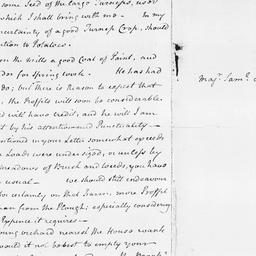 some Seed of the large Turneps, used
which I shall bring with me. In my
uncertainty of a good Turnep Crop, should
ention to Potatoes.
on the Mills a good Coat of Paint, and
for Spring work. He has had
do; but there is Reason to expect that
, the Proffits will soon be considerable.
d will have Credit, and he will I am
t by his attention and Punctuality
entioned in your Letter somewhat exceeds
Loads were under sized, or unless by
meadows of Brush and weeds, you have
usual — we should still endeavour
for certainly on that Farm, more Proffit
an from the Plough; especially considering
Expence it requires —
oung orchard nearest the House wants
would it not be best to employ your
Majr. Saml.